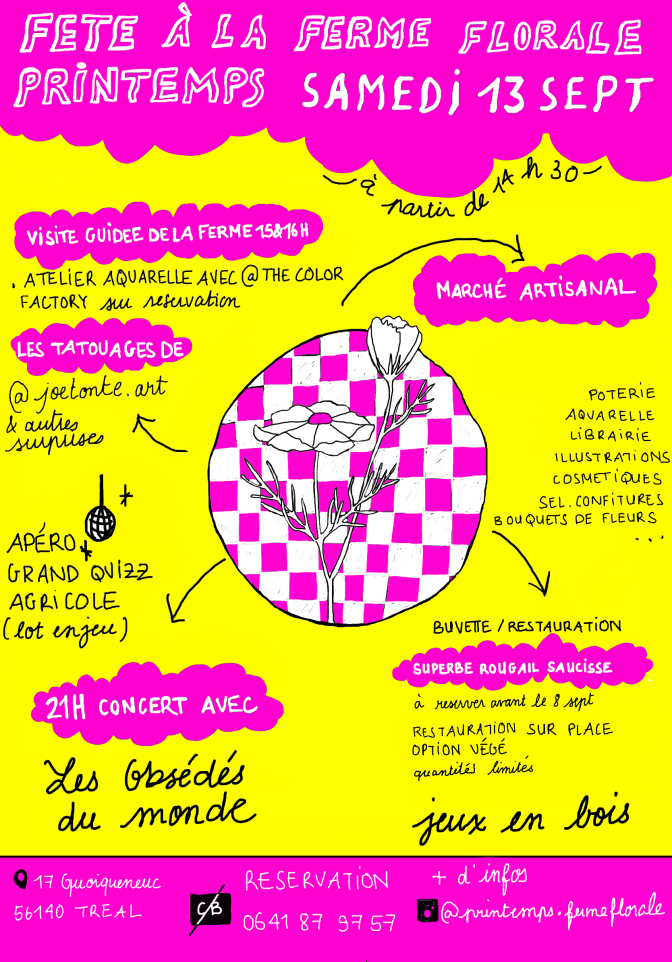 FETE À LA FERME FLORALE
PRINTEMPS SAMEDi 13 SEPT
à partir de 14 h 30
ViSiTE GUiDEE DE LA FERME 15&16H
. ATELIER AQUARELLE AVEC @ THE COLOR
FACTORY sur reservation
MARCHÉ ARTiSANAL
LES TATOUAGES DE
@joetonte.art
& autres
surprises
POTERiE
AQUARELLE
LiBRAiRiE
iLLUSTRATiONS
COSMETiQUES
SEL. CONFiTURES
BOUQUETS DE FLEURS
...
APÉRO
GRAND QUIZZ
AGRiCOLE
(lot enjeu)
BUVETTE / RESTAURATION
SUPERBE ROUGAIL SAUCISSE
à reserver avant le 8 sept
RESTAURATION SUR PLACE
OPTION VÉGÉ
quantités limités
21H CONCERT AVEC
Les Obsédés
du monde
jeux en bois
17 Quoiqueneuc
56140 TREAL
CB
RESERVATION
06 41 87 97 57
+ d'infos
@printemps.fermeflorale